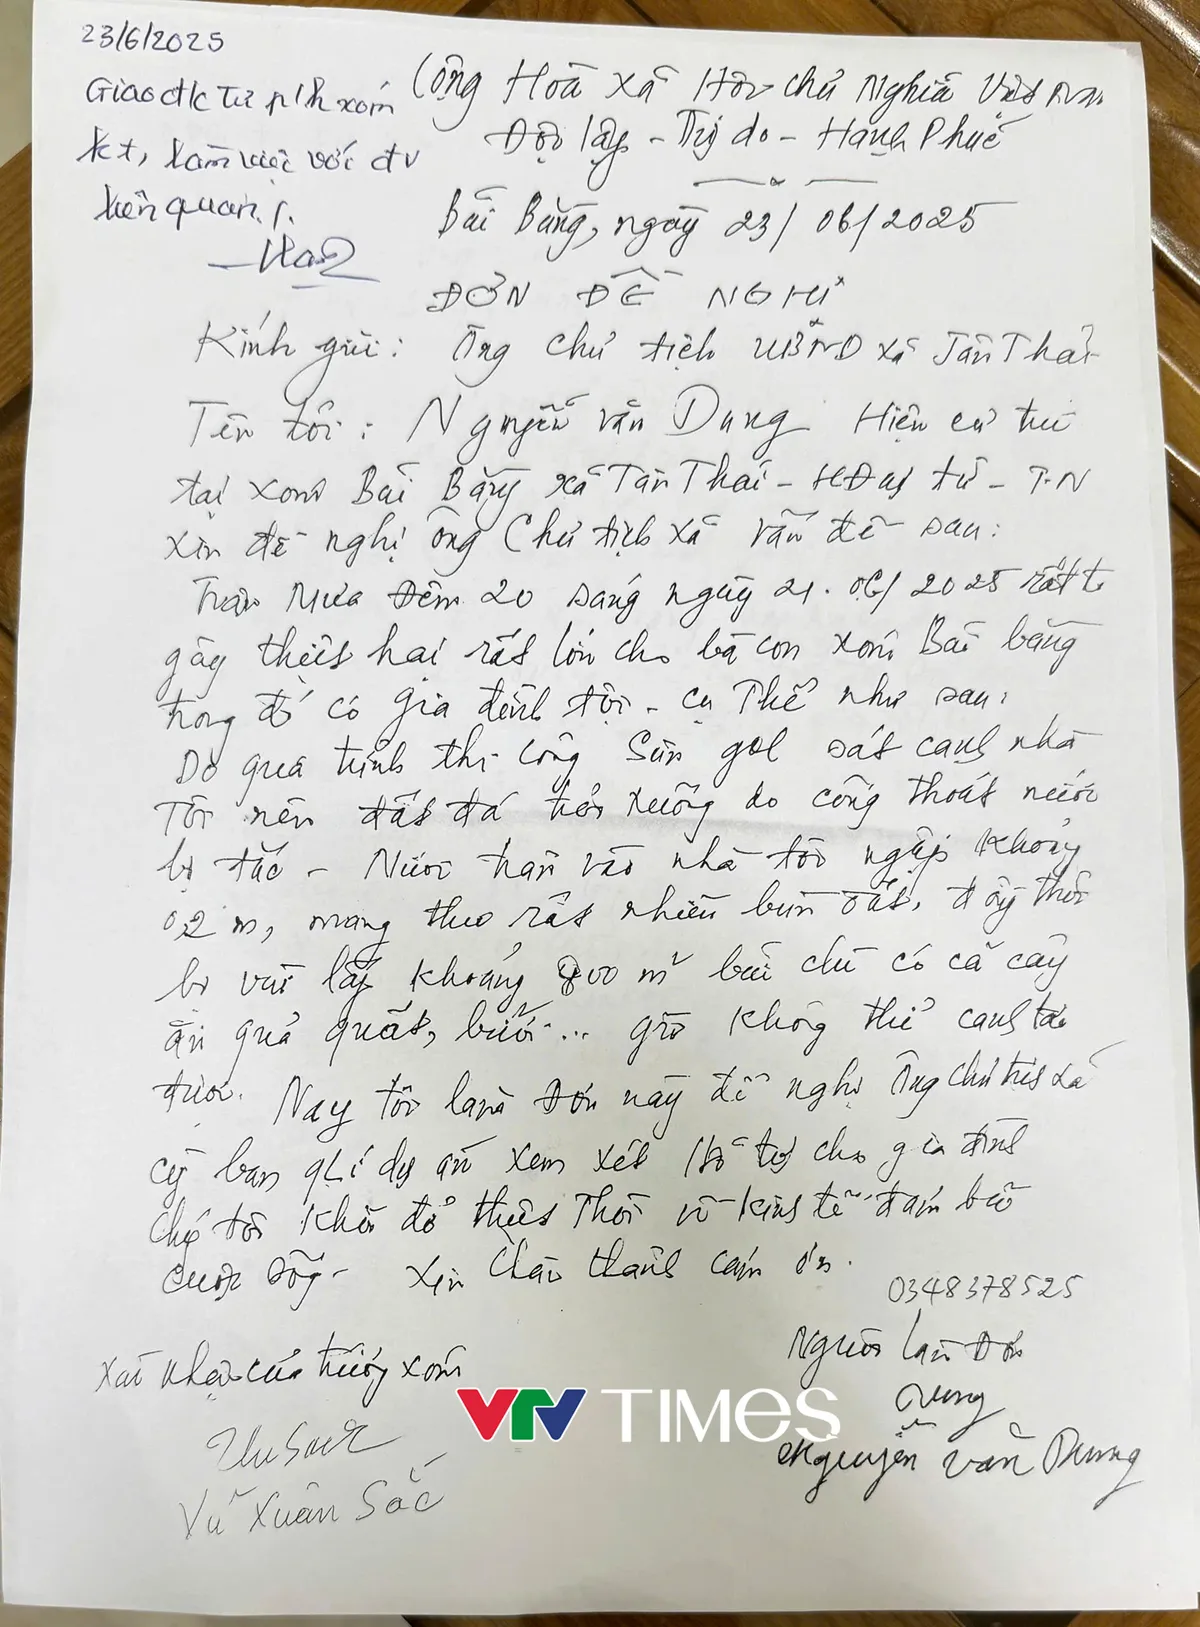 23/6/2025
Giao đ/c Tư p/h xóm
kt, làm việc với đv
liên quan ./.
Cộng Hoà Xã Hội chủ Nghĩa Việt Nam
Độc lập - Tự do - Hành Phúc
Bãi Bằng, ngày 23/ 06/2025
ĐƠN ĐỀ NGHỊ
Kính gửi: Ông chủ tịch UBND xã Tân Thái
Tên tôi: Nguyễn văn Dung Hiện cư trú
tại xóm Bãi Bằng xã Tân Thái - HĐại từ - T.N
xin đề nghị ông Chủ tịch xã vấn đề sau:
Trận Mưa Đêm 20 sáng ngày 21.06/2025 rất to
gây thiệt hại rất lớn cho bà con xóm Bãi bằng
trong đó có gia đình tôi - cụ Thể như sau:
Do quá trình thi công Sân gol sát cạnh nhà
Tôi nên đất đá trôi xuống do cống thoát nước
bị tắc - Nước tràn vào nhà tôi ngập Khoảng
0,2 m, mang theo rất nhiều bùn đất, đồng thời
bị vùi lấp khoảng 800 m² bùi chè có cả cây
ăn quả quất, bưởi... giờ không thể canh tác
được. Nay tôi làm Đơn này đề nghị Ông chủ tịch xã
cùng ban qLí dự án xem xét Hỗ trợ cho gia đình
chúng tôi khỏi đỡ thiệt Thòi về kinh tế đảm bảo
cuộc sống - xin chân thành cảm ơn.
0348378525
Người làm Đơn
Dung
Nguyễn văn Dung
Xác nhận của trưởng xóm
Vũ Xuân Sắc
VTV TIMES